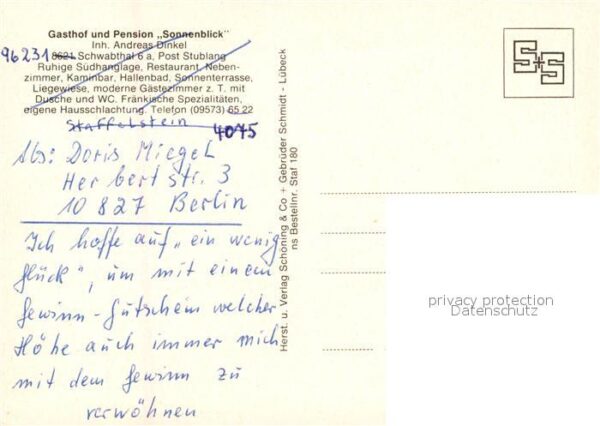 Gasthof und Pension „Sonnenblick"
Inh. Andreas Dinkel
96231 8621 Schwabthal 6 a, Post Stublang
Ruhige Südhanglage, Restaurant, Neben-
zimmer, Kaminbar, Hallenbad, Sonnenterrasse,
Liegewiese, moderne Gästezimmer z. T. mit
Dusche und WC. Fränkische Spezialitäten,
eigene Hausschlachtung. Telefon (09573) 65 22
Staffelstein 4075
Abs: Doris Miegel
Herbertstr. 3
10 827 Berlin
Ich hoffe auf „ein wenig
Glück", um mit einem
Gewinn-Gutschein welcher
Höhe auch immer mich
mit dem Gewinn zu
verwöhnen
Herst. u. Verlag Schöning & Co + Gebrüder Schmidt - Lübeck
ns Bestellnr. Staf 180
S+S
privacy protection
Datenschutz